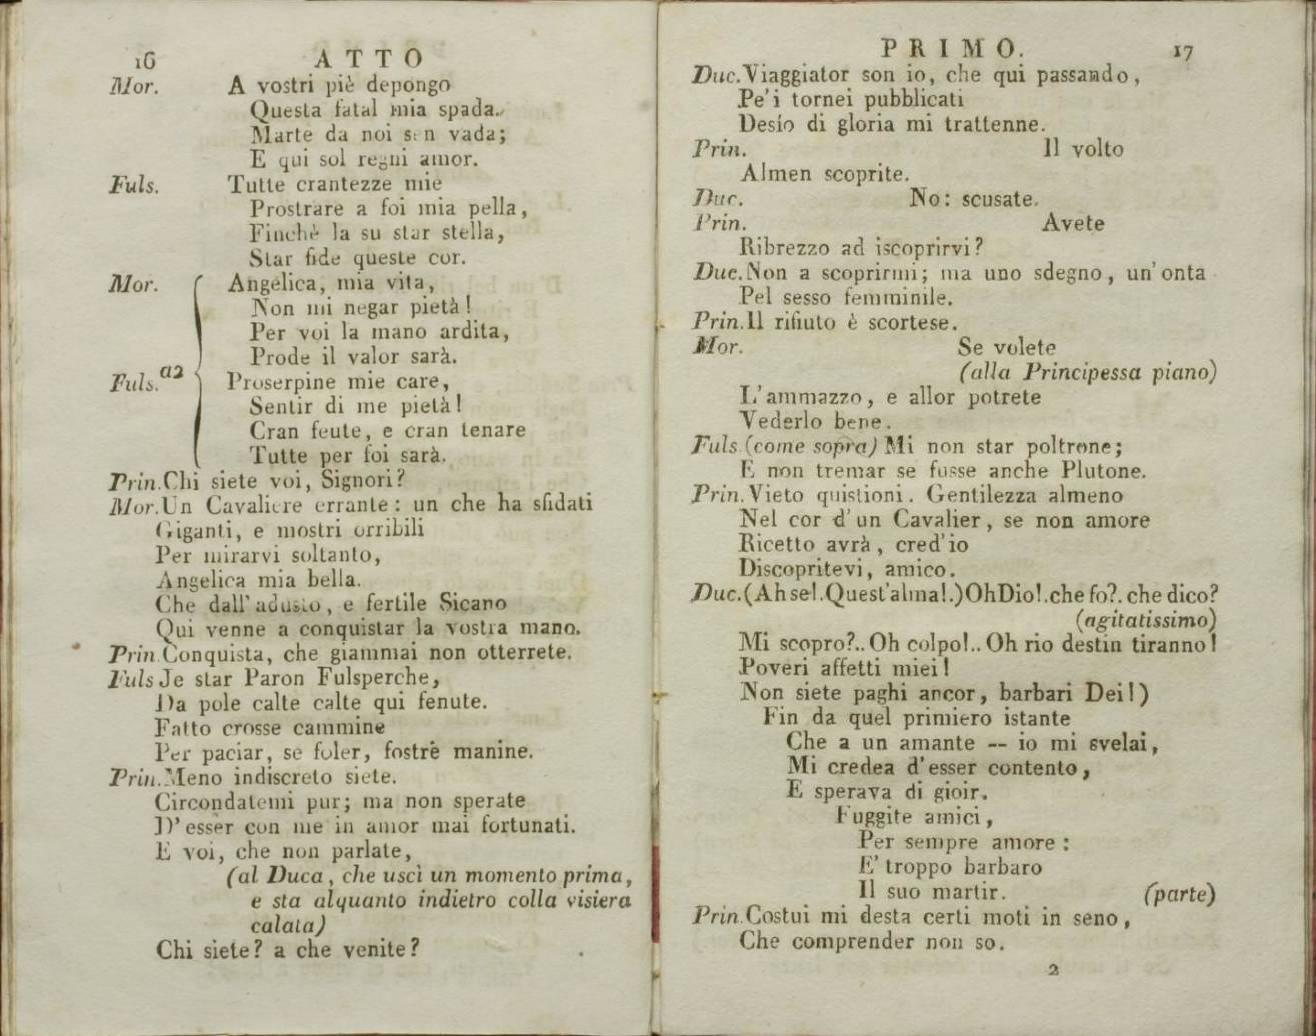 16 ATTO
Mor. A vostri piè depongo
Questa fatal mia spada.
Marte da noi sen vada;
E qui sol regni amor.
Fuls. Tutte crantezze mie
Prostrare a foi mia pella,
Finchè la su star stella,
Star fide queste cor.
Mor. Angelica, mia vita,
Non mi negar pietà!
Per voi la mano ardita,
Prode il valor sarà.
Fuls. a2 Proserpine mie care,
Sentir di me pietà!
Cran feute, e cran tenare
Tutte per foi sarà.
Prin. Chi siete voi, Signori?
Mor. Un Cavaliere errante: un che ha sfidati
Giganti, e mostri orribili
Per mirarvi soltanto,
Angelica mia bella.
Che dall'adusto, e fertile Sicano
Qui venne a conquistar la vostra mano.
Prin. Conquista, che giammai non otterrete.
Fuls Je star Paron Fulsperche,
Da pole calte calte qui fenute.
Fatto crosse cammine
Per paciar, se foler, fostrè manine.
Prin. Meno indiscreto siete.
Circondatemi pur; ma non sperate
D'esser con me in amor mai fortunati.
E voi, che non parlate,
(al Duca, che uscì un momento prima,
e sta alquanto indietro colla visiera
calata)
Chi siete? a che venite?
PRIMO. 17
Duc. Viaggiator son io, che qui passando,
Pe'i tornei pubblicati
Desio di gloria mi trattenne.
Prin. Il volto
Almen scoprite.
Duc. No: scusate.
Prin. Avete
Ribrezzo ad iscoprirvi?
Duc. Non a scoprirmi; ma uno sdegno, un'onta
Pel sesso femminile.
Prin. Il rifiuto è scortese.
Mor. Se volete
(alla Principessa piano)
L'ammazzo, e allor potrete
Vederlo bene.
Fuls (come sopra) Mi non star poltrone;
E non tremar se fusse anche Plutone.
Prin. Vieto quistioni. Gentilezza almeno
Nel cor d'un Cavalier, se non amore
Ricetto avrà, cred'io
Discopritevi, amico.
Duc. (Ah se!. Quest'alma!.) Oh Dio!. che fo?. che dico?
(agitatissimo)
Mi scopro?.. Oh colpo!.. Oh rio destin tiranno!
Poveri affetti miei!
Non siete paghi ancor, barbari Dei!)
Fin da quel primiero istante
Che a un amante -- io mi svelai,
Mi credea d'esser contento,
E sperava di gioir.
Fuggite amici,
Per sempre amore:
E' troppo barbaro
Il suo martir. (parte)
Prin. Costui mi desta certi moti in seno,
Che comprender non so.
2